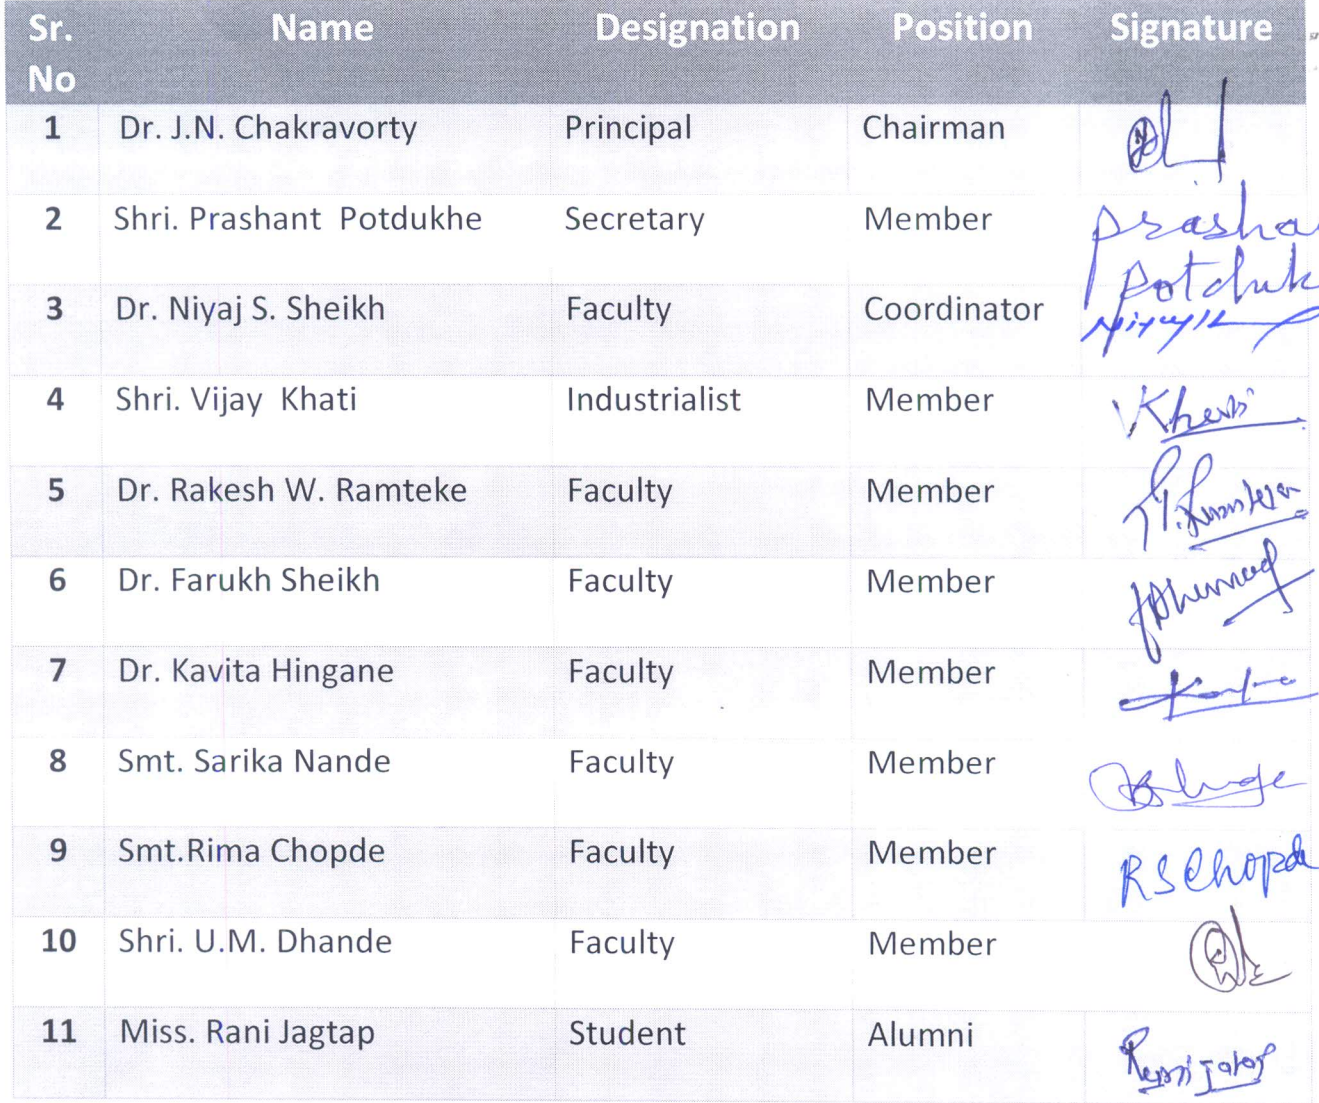 Sr. No Name Designation Position Signature
1 Dr. J.N. Chakravorty Principal Chairman
2 Shri. Prashant Potdukhe Secretary Member Prasha
Potduk
3 Dr. Niyaj S. Sheikh Faculty Coordinator
4 Shri. Vijay Khati Industrialist Member VKhati
5 Dr. Rakesh W. Ramteke Faculty Member
6 Dr. Farukh Sheikh Faculty Member
7 Dr. Kavita Hingane Faculty Member
8 Smt. Sarika Nande Faculty Member
9 Smt.Rima Chopde Faculty Member RSChopde
10 Shri. U.M. Dhande Faculty Member
11 Miss. Rani Jagtap Student Alumni